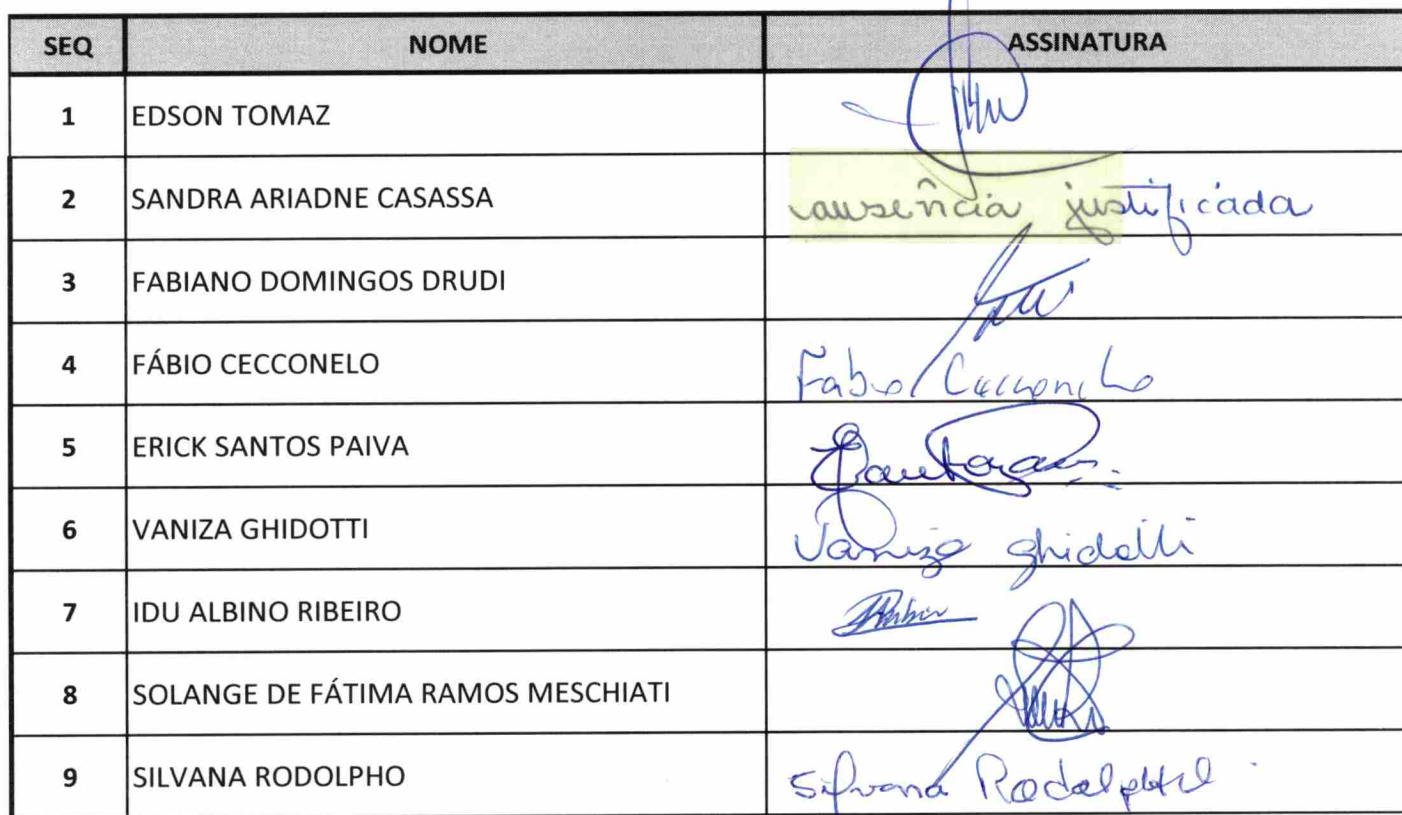 SEQ NOME ASSINATURA
1 EDSON TOMAZ
2 SANDRA ARIADNE CASASSA ausência justificada
3 FABIANO DOMINGOS DRUDI
4 FÁBIO CECCONELO Fabio Cecconelo
5 ERICK SANTOS PAIVA
6 VANIZA GHIDOTTI Vaniza Ghidotti
7 IDU ALBINO RIBEIRO
8 SOLANGE DE FÁTIMA RAMOS MESCHIATI
9 SILVANA RODOLPHO Silvana